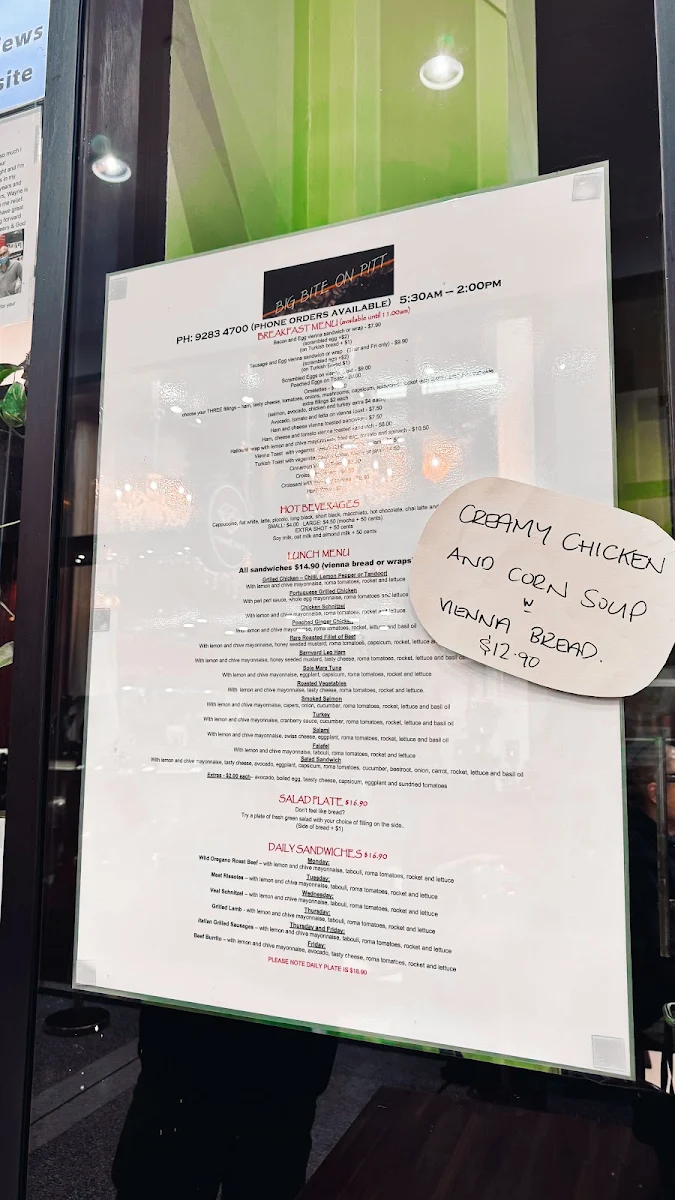 iews
site
BIG BITE ON PITT
PH: 9283 4700 (PHONE ORDERS AVAILABLE) 5:30AM – 2:00PM
BREAKFAST MENU (available until 11.00am)
Bacon and Egg vienna sandwich or wrap - $7.90
(scrambled egg +$2)
(on Turkish bread + $1)
Sausage and Egg vienna sandwich or wrap and Fri only) - $9.90
(scrambled egg +$2)
(on Turkish bread $1)
Scrambled Eggs on - $9.00
Poached Eggs on
Omelettes -
choose your THREE fillings – ham, tasty cheese, tomatoes, onions, mushrooms, capsicum,
extra fillings $2 each
(salmon, avocado, chicken and turkey extra $4 each)
Avocado, tomato and fetta on vienna toast - $7.50
Ham and cheese vienna toasted sandwich - $7.50
Ham, cheese and tomato vienna toasted sandwich - $8.00
wrap with lemon and chive and spinach - $10.50
Vienna Toast with vegemite,
Turkish Toast with vegemite,
Cinnamon
Croissant with
HOT BEVERAGES
Cappuccino, flat white, latte, piccolo, long black, short black, macchiato, hot chocolate, chai latte and
SMALL: $4.00 LARGE: $4.50 (mocha + 50 cents)
EXTRA SHOT + 50 cents
Soy milk, oat milk and almond milk + 50 cents
LUNCH MENU
All sandwiches $14.90 (vienna bread or wraps
Grilled Chicken – Chilli, Lemon Pepper or Tandoori
With lemon and chive mayonnaise, roma tomatoes, rocket and lettuce
Portuguese Grilled Chicken
With peri peri sauce, whole egg mayonnaise, roma tomatoes and lettuce
Chicken Schnitzel
With lemon and chive mayonnaise, roma tomatoes, rocket and lettuce
Poached Ginger Chicken
With lemon and chive mayonnaise, roma tomatoes, rocket, lettuce and basil oil
Rare Roasted Fillet of Beef
With lemon and chive mayonnaise, honey seeded mustard, roma tomatoes, capsicum, rocket, lettuce
Barnyard Leg Ham
With lemon and chive mayonnaise, honey seeded mustard, tasty cheese, roma tomatoes, rocket, lettuce and basil oil
Sole Mare Tuna
With lemon and chive mayonnaise, eggplant, capsicum, roma tomatoes, rocket and lettuce
Roasted Vegetables
With lemon and chive mayonnaise, tasty cheese, roma tomatoes, rocket and lettuce.
Smoked Salmon
With lemon and chive mayonnaise, capers, onion, cucumber, roma tomatoes, rocket, lettuce and basil oil
Turkey
With lemon and chive mayonnaise, cranberry sauce, cucumber, roma tomatoes, rocket, lettuce and basil oil
Salami
With lemon and chive mayonnaise, swiss cheese, eggplant, roma tomatoes, rocket, lettuce and basil oil
Falafel
With lemon and chive mayonnaise, tabouli, roma tomatoes, rocket and lettuce
Salad Sandwich
With lemon and chive mayonnaise, tasty cheese, avocado, eggplant, capsicum, roma tomatoes, cucumber, beetroot, onion, carrot, rocket, lettuce and basil oil
Extras - $2.00 each– avocado, boiled egg, tasty cheese, capsicum, eggplant and sundried tomatoes
SALAD PLATE $16.90
Don't feel like bread?
Try a plate of fresh green salad with your choice of filling on the side.
(Side of bread + $1)
DAILY SANDWICHES $16.90
Monday:
Wild Oregano Roast Beef – with lemon and chive mayonnaise, tabouli, roma tomatoes, rocket and lettuce
Tuesday:
Meat Rissoles – with lemon and chive mayonnaise, tabouli, roma tomatoes, rocket and lettuce
Wednesday:
Veal Schnitzel – with lemon and chive mayonnaise, tabouli, roma tomatoes, rocket and lettuce
Thursday:
Grilled Lamb - with lemon and chive mayonnaise, tabouli, roma tomatoes, rocket and lettuce
Thursday and Friday:
Italian Grilled Sausages – with lemon and chive mayonnaise, tabouli, roma tomatoes, rocket and lettuce
Friday:
Beef Burrito – with lemon and chive mayonnaise, avocado, tasty cheese, roma tomatoes, rocket and lettuce
PLEASE NOTE DAILY PLATE IS $18.90
CREAMY CHICKEN
AND CORN SOUP
W
VIENNA BREAD.
$12.90